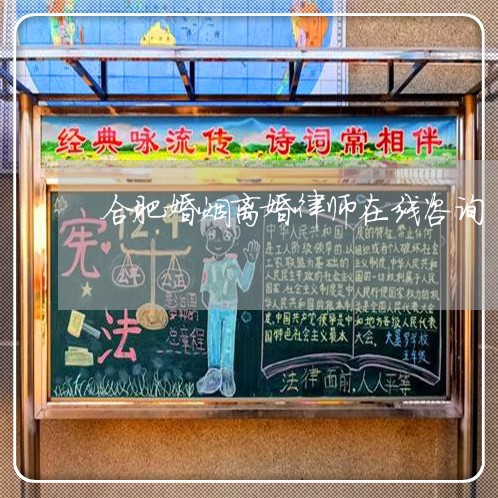 经典咏流传 诗词常相伴
合肥婚烟离婚律师在线咨询
宪法
12.4
公平 公正
总章程
中华人民共和国
是工人阶级领导的,以
工农联盟为基础的
人民民主专政的社会主义
国家,社会主义制度是中
华人民共和国的根本制
度,中国共产党领导是中
国特色社会主义最本
质的特征,禁止任何
组织或者个人破坏社会
主义制度,中华人民共和
国的一切权利属于人民,
人民行使国家权力的机
关是全国人民代表大会
和地方各级人民代表
大会。
五年级
法律面前,人人平等